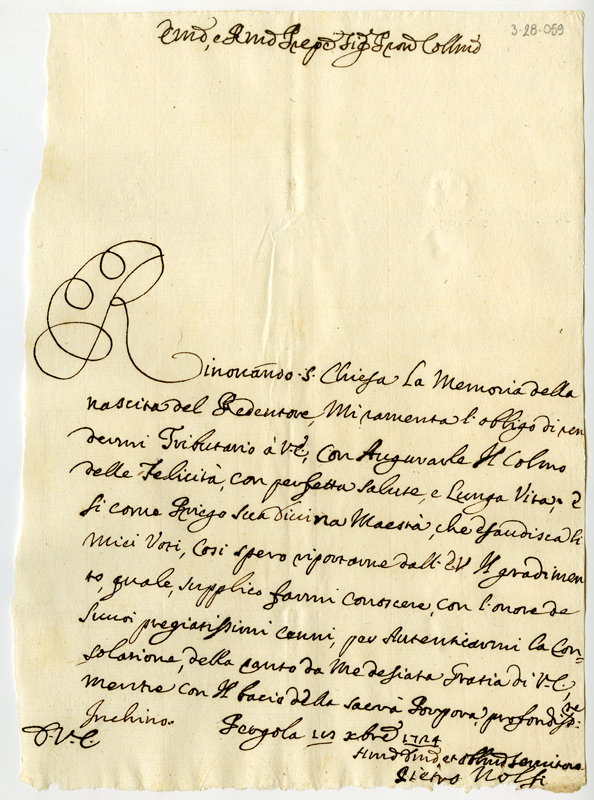 3-28-059
Em̃o, e Rm̃o Prẽpe Sig.r Pron Collm̃o
Rinouando S. Chiesa La Memoria della
nascita del Redentore, Mi ramenta l'obligo di ren
dermi Tributario à V.E., con Augurarle Il Colmo
delle Felicità, con perfetta salute, e Lunga Vita; E
si come Priego Sua Diuina Maestà, che esaudisca li
miei Voti, Cosi spero riportarne dall' E.V. Il gradimen
to, quale, supplico farmi conoscere, con l'onore de
Suuoi pregiatissimi cenni, per Autenticarmi la Con=
solazione, della tanto da Me desiata Gratia di V.E.,
mentre con Il bacio della sacra Porpora, profondis.me
Inchino.
Pergola xbre 1724
D.V.E.
Hum̃o Deum̃o et obllm̃o seruitore
Pietro Nolfi